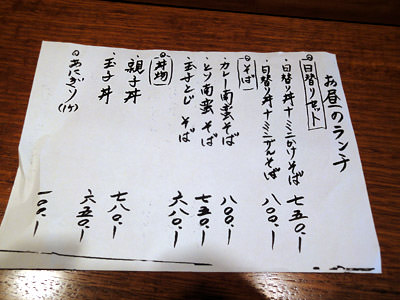 お昼のランチ
◎日替りセット
・日替り丼+ミニかけそば 七五〇.ー
・日替り丼+ミニざるそば 八〇〇.ー
◎そば
カレー南蛮そば 八〇〇.ー
とり南蛮そば 七五〇.ー
玉子とじそば 六八〇.ー
◎丼物
・親子丼 七八〇.ー
・玉子丼 六五〇.ー
◎おにぎり(1ケ) 一〇〇.ー